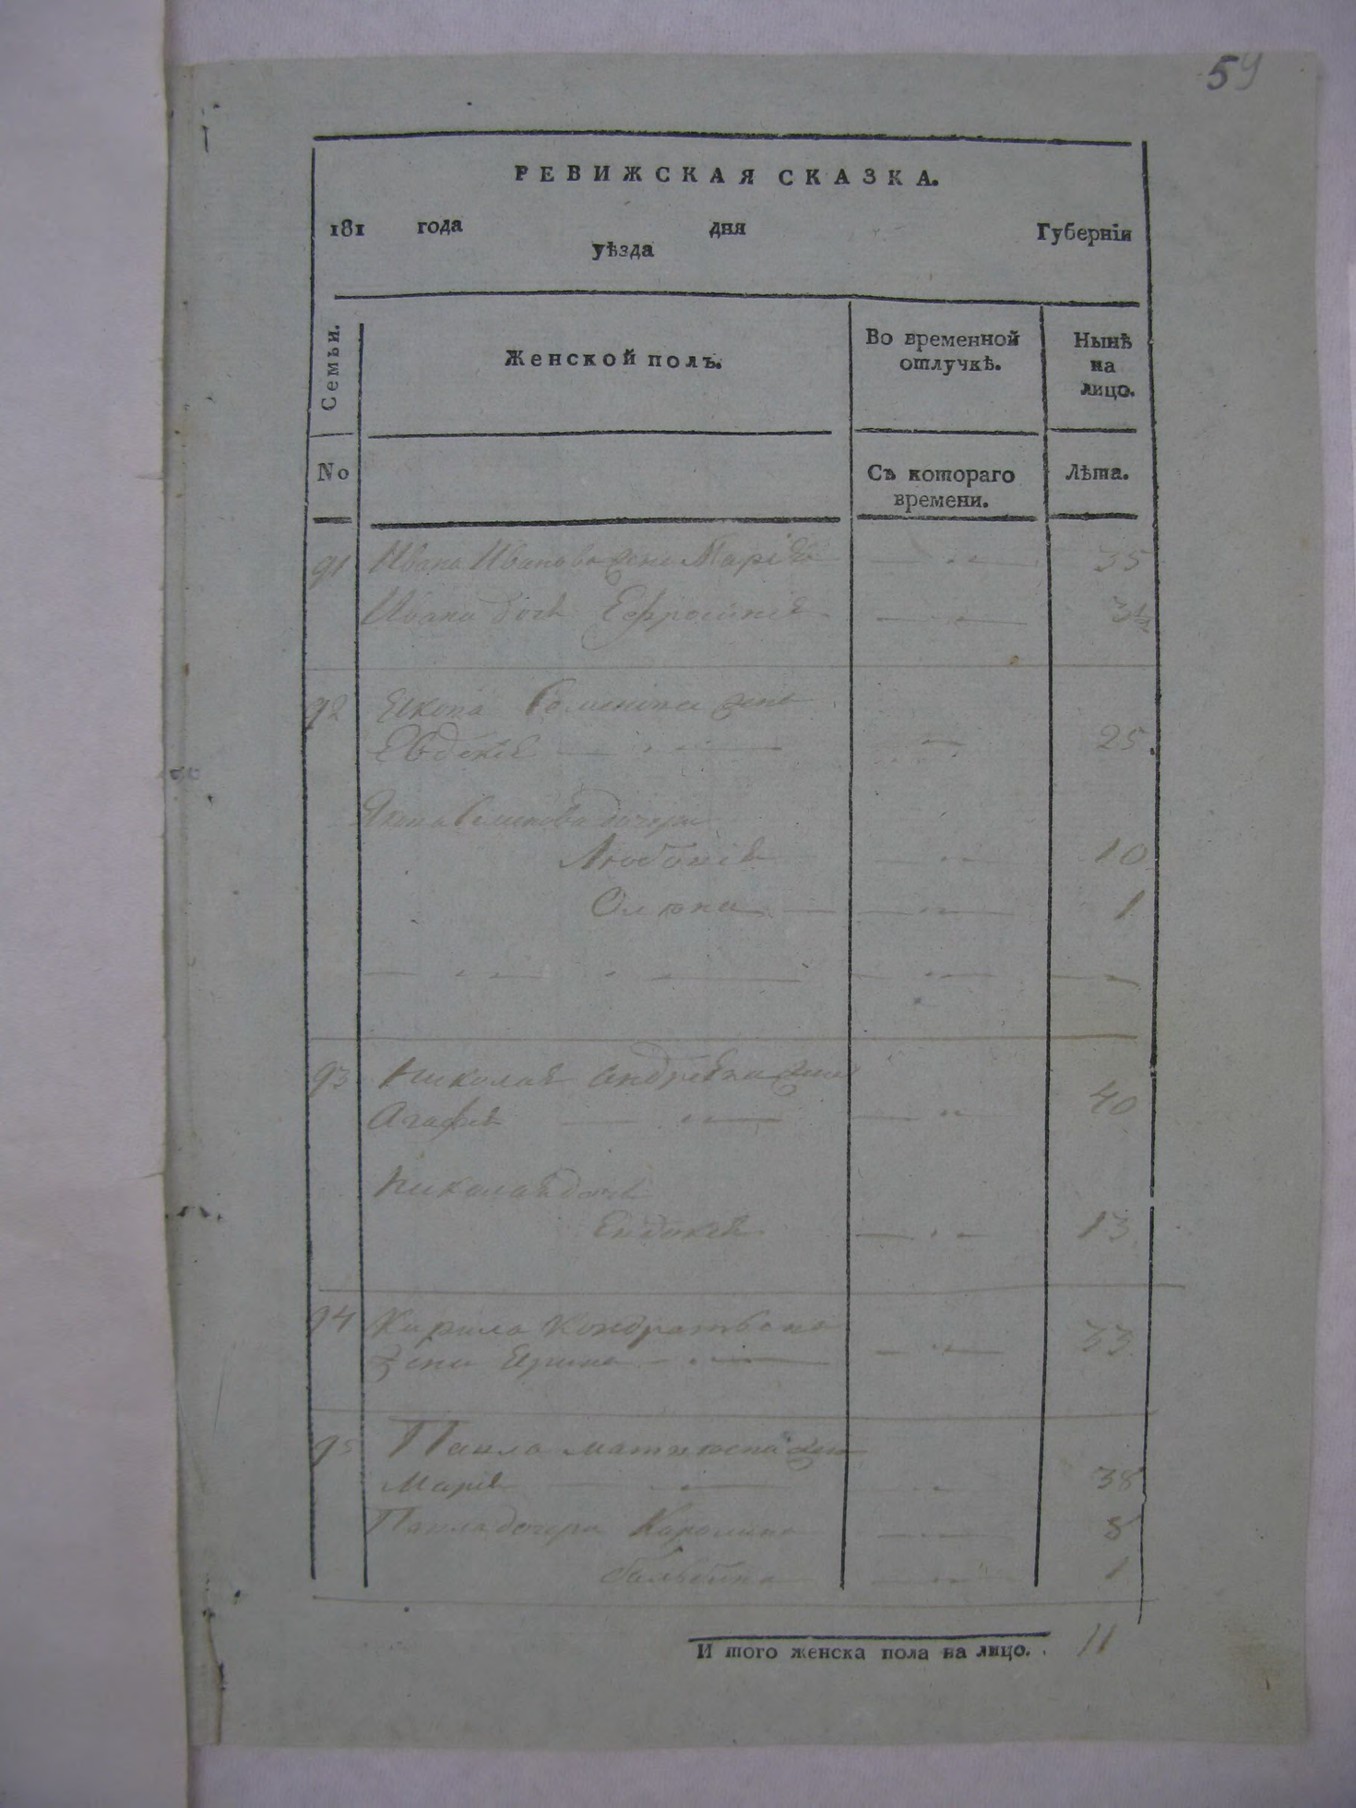 59
РЕВИЖСКАЯ СКАЗКА.
181 года дня Губерніи
уѣзда
Семьи. Женской полъ. Во временной отлучкѣ. Нынѣ на лицо.
No Съ котораго времени. Лѣта.
91 Ивана Иванова жена Марія 35
Ивана дочь Ефросинія 3½
92 жена
Евдокія 25
дочери
10
Олена 1
93 Николая Андреева жена
Агафія 40
Николая дочь
Евдокія 13
94 Кирила Кондратьева
жена Ирина 33
95 Павла жена
Марія 38
Павла дочери Каролина 8
1
И того женска пола на лицо. 11